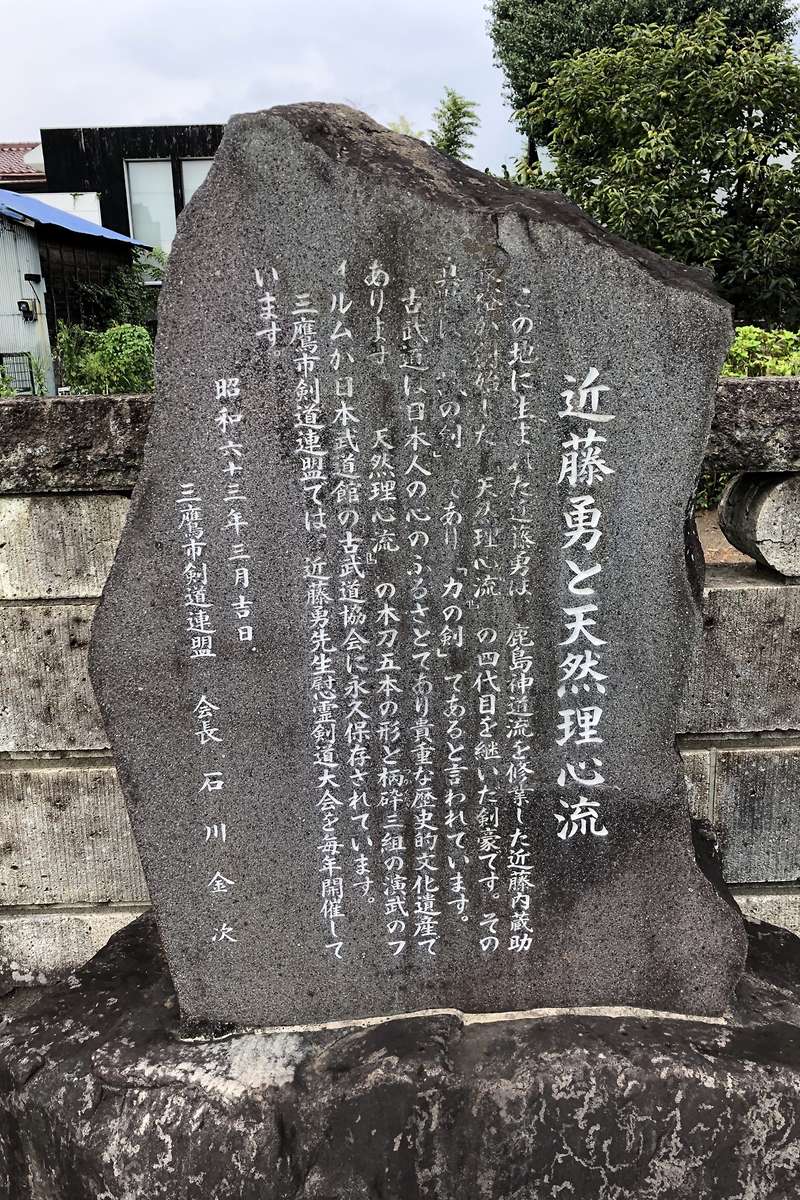 近藤勇と天然理心流
この地に生まれた近藤勇は 鹿島神道流を修業した近藤内蔵助
が創始した『天然理心流』の四代目を継いだ剣豪です。その
の剣」であり「力の剣」であると言われています。
古武道は日本人の心のふるさとであり貴重な歴史的文化遺産で
あります。 『天然理心流』の木刀五本の形と柄砕三組の演武のフ
ィルムが日本武道館の古武道協会に永久保存されています。
三鷹市剣道連盟では、近藤勇先生慰霊剣道大会を毎年開催して
います。
昭和六十三年三月吉日
三鷹市剣道連盟 会長 石川金次